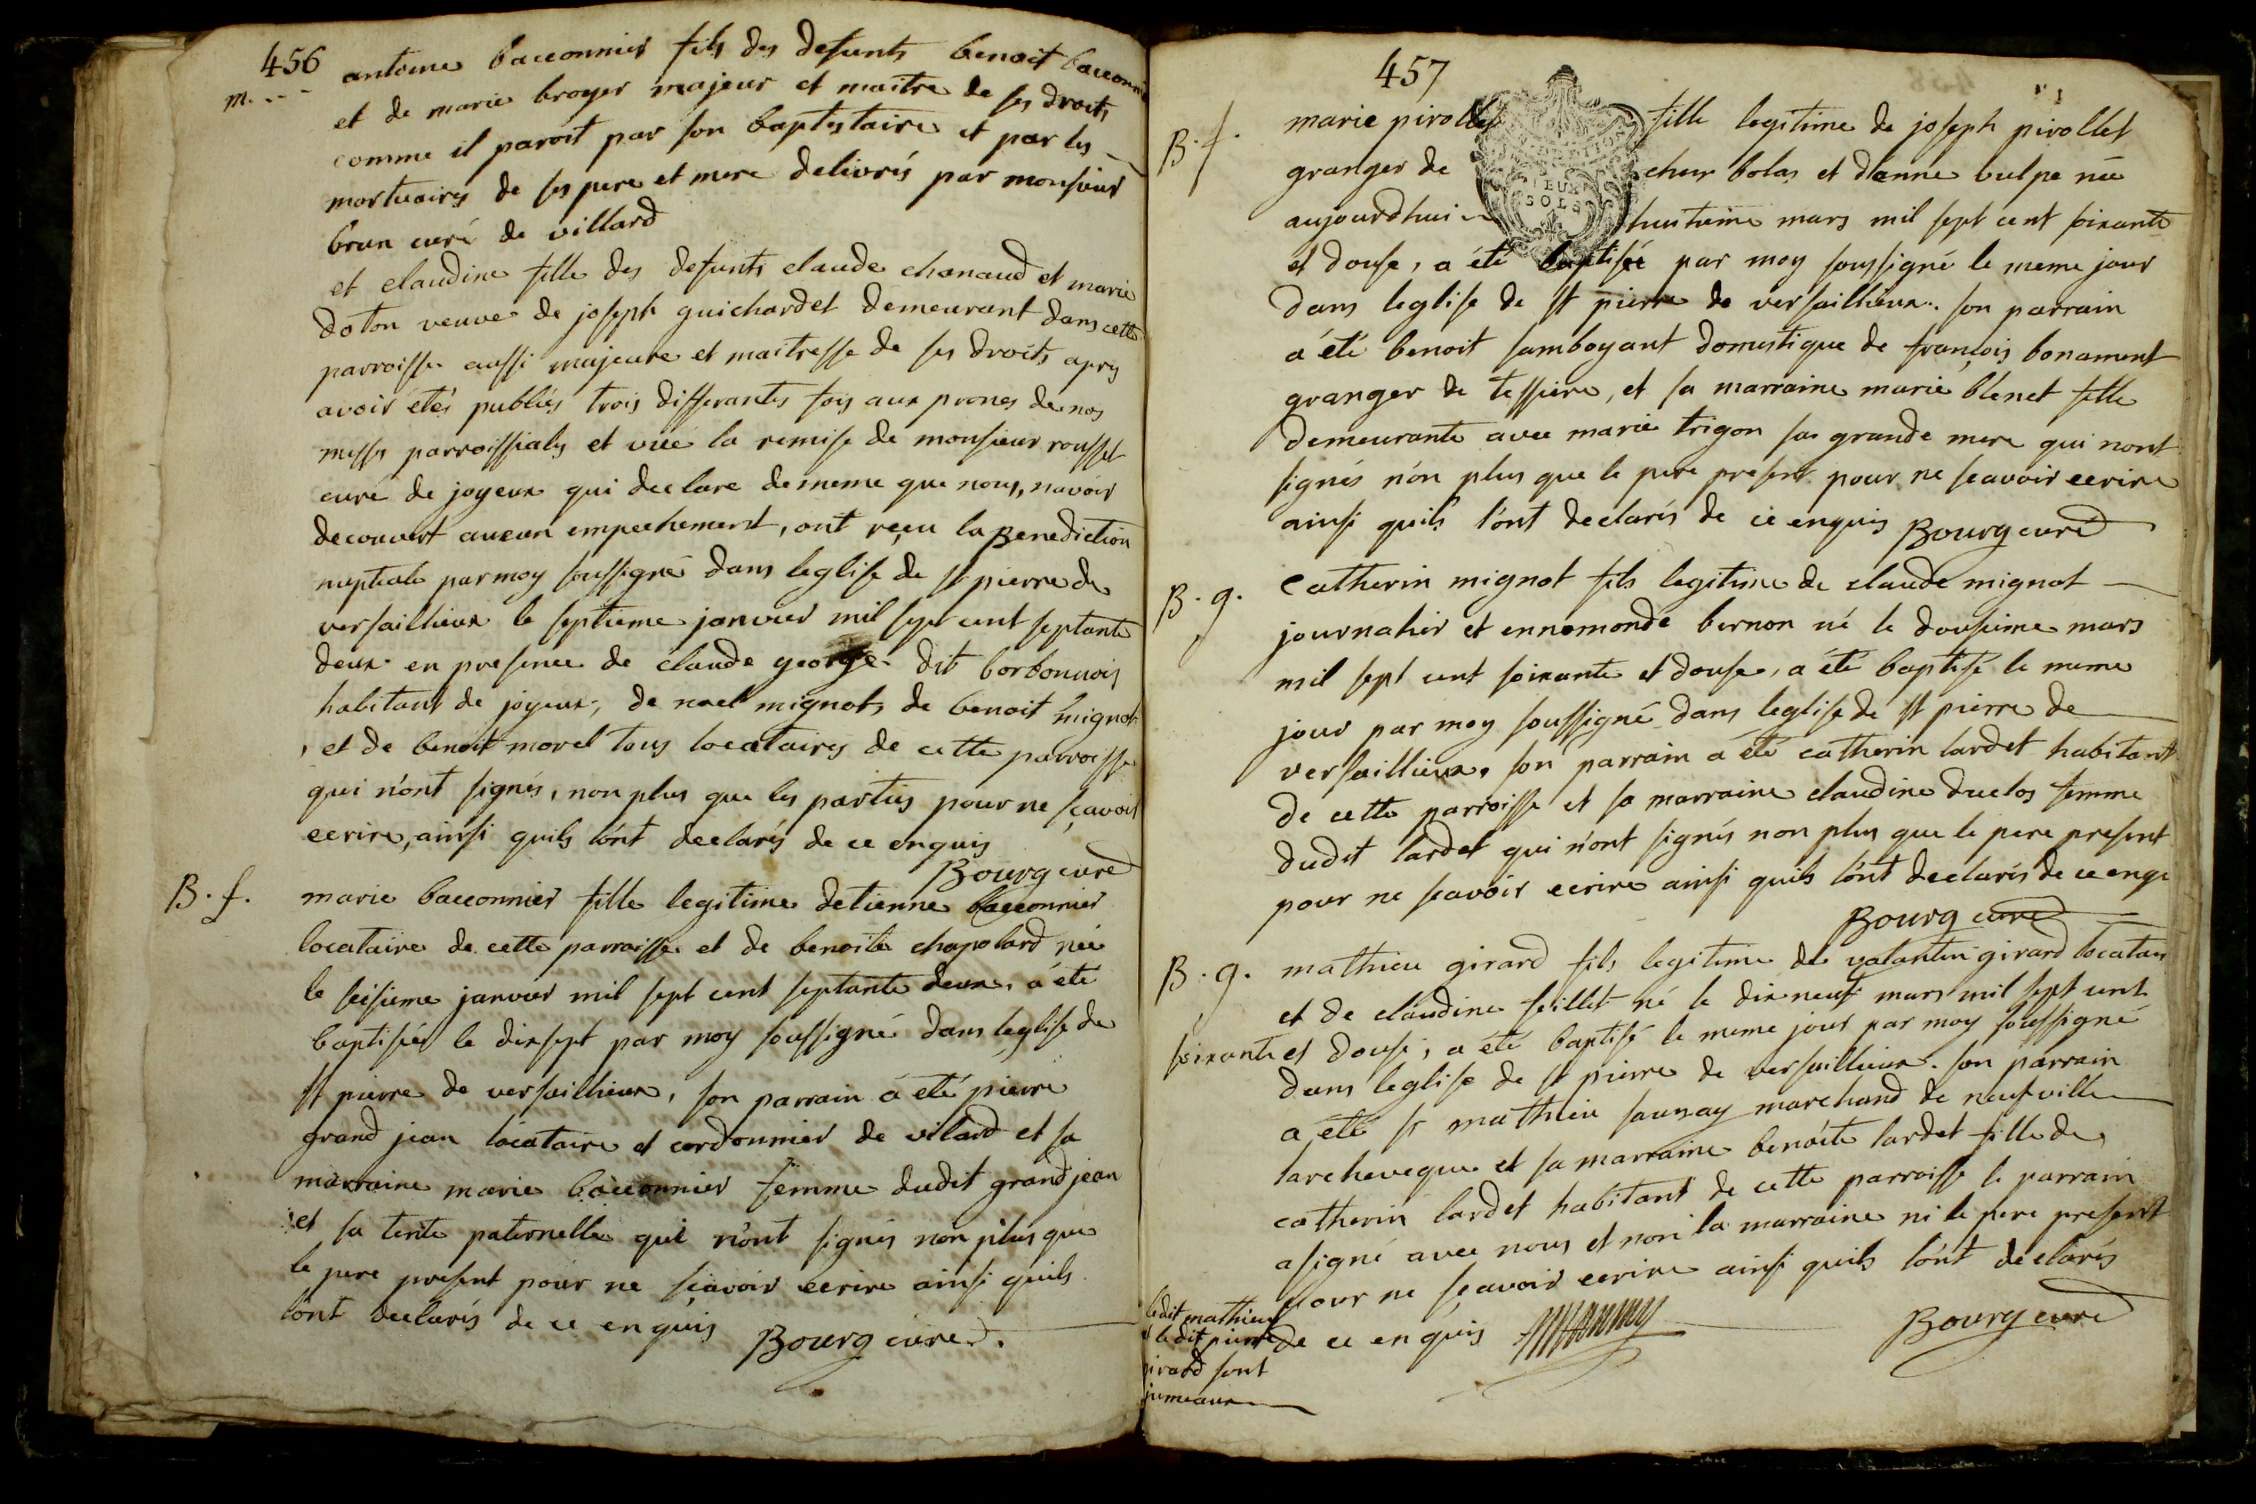 456
m.
antoine bacconnier fils des defunts benoit bacconnier
et de marie broyer majeur et maitre de ses droits
comme il paroit par son baptistaire et par les
mortuaires de ses pere et mere delivrés par monsieur
brun curé de villard
et claudine fille des defunts claude chanaud et marie
doton veuve de joseph guichardet demeurant dans cette
parroisse aussi majeure et maitresse de ses droits apres
avoir étés publiés trois differantes fois aux prones de nos
messes parroissiales et vüe la remise de monsieur rousset
curé de joyeux qui declare de meme que nous, navoir
decouvert aucun empechement, ont reçu la Benediction
nuptiale par moy soussigné dans leglise de st pierre de
versaillieux le septieme janvier mil sept cent septante
deux en presence de claude george dit borbonnois
habitant de joyeux, de noel mignot, de benoit mignot
, et de benoit morel tous locataires de cette parroisse
qui n'ont signés, non plus que les parties pour ne sçavoir
ecrire, ainsi quils lont declarés de ce enquis
Bourg curé
B. f.
marie bacconnier fille legitime detienne bacconnier
locataire de cette parroisse et de benoite chapolard née
le seisieme janvier mil sept cent septante deux, a été
baptisée le dixsept par moy soussigné dans leglise de
st pierre de versaillieux, son parrain a été pierre
grand jean locataire et cordonnier de vilard et sa
marraine marie bacconnier femme dudit grand jean
et sa tente paternelle qui n'ont signés non plus que
le pere present pour ne sçavoir ecrire ainsi quils
lont declarés de ce enquis Bourg curé.
457
B. f.
marie pirollet fille legitime de joseph pirollet
granger de cheur bolas et d'anne vulpe née
aujourdhui huitieme mars mil sept cent soixante
et douse, a été baptisée par moy soussigné le meme jour
dans leglise de st pierre de versaillieux. son parrain
a été benoit samboyant domestique de françois bonament
granger de tessiere, et sa marraine marie blenet fille
demeurante avec marie trigon sa grande mere qui nont
signés non plus que le pere present pour ne scavoir ecrire
ainsi quils l'ont declarés de ce enquis Bourg curé
B. g.
Catherin mignot fils legitime de claude mignot
journalier et ennemonde bernon né le dousieme mars
mil sept cent soixante et douse, a été baptisé le meme
jour par moy soussigné dans leglise de st pierre de
versaillieux, son parrain a été catherin lardet habitant
de cette parroisse et sa marraine claudine duclos femme
dudit lardet qui n'ont signés non plus que le pere present
pour ne scavoir ecrire ainsi quils l'ont declarés de ce enqs
Bourg curé
B. g.
mathieu girard fils legitime de valantin girard locataire
et de claudine feillet né le dixneuf mars mil sept cent
soixante et douse, a été baptisé le meme jour par moy soussigné
dans leglise de st pierre de versaillieux. son parrain
a été sr mathieu saunay marchand de neufville
larcheveque et sa marraine benoite lardet fille de
catherin lardet habitant de cette parroisse le parrain
a signé avec nous et non la marraine ni le pere present
pour ne sçavoir ecrire ainsi quils l'ont declarés
de ce enquis Bourg curé
ledit mathieu
et ledit pierre
girard sont
jumeaux